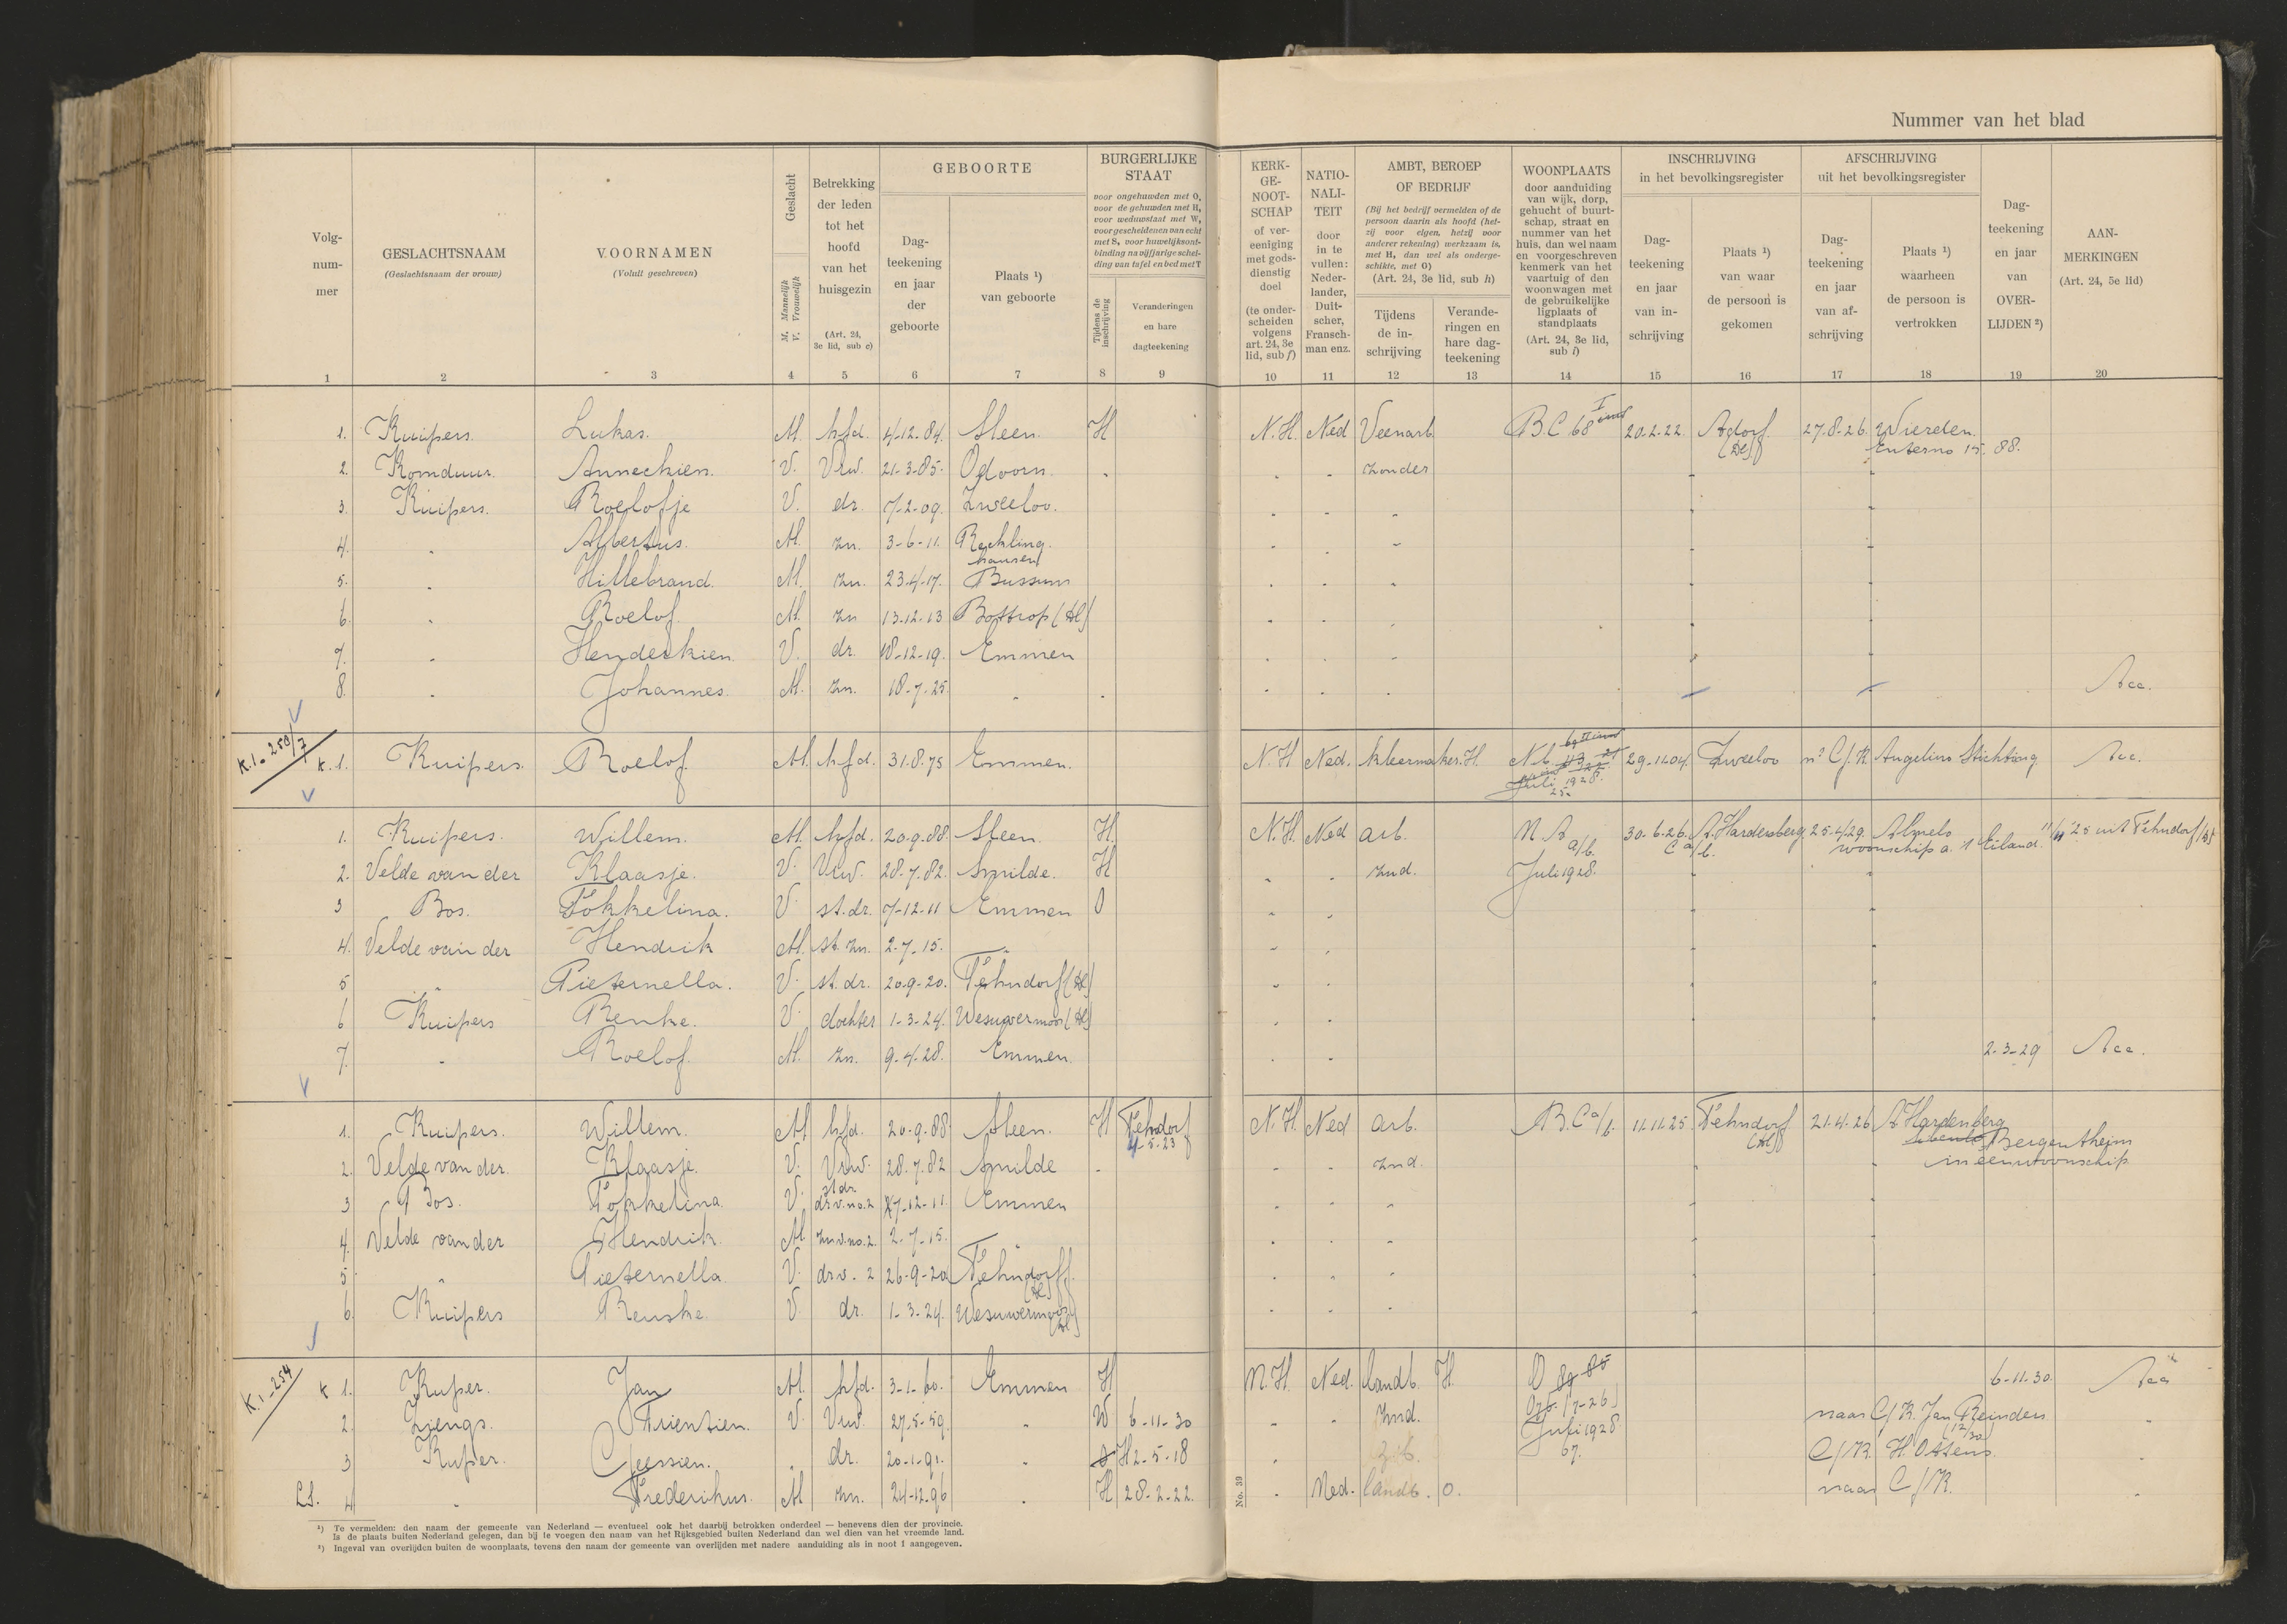 Nummer van het blad
Volg-
num-
mer
GESLACHTSNAAM
(Geslachtsnaam der vrouw)
VOORNAMEN
(Voluit geschreven)
Geslacht
M. Mannelijk
V. Vrouwelijk
Betrekking
der leden
tot het
hoofd
van het
huisgezin
(Art. 24,
3e lid, sub c)
GEBOORTE
Dag-
teekening
en jaar
der
geboorte
Plaats ¹)
van geboorte
BURGERLIJKE
STAAT
voor ongehuwden met O,
voor de gehuwden met H,
voor weduwstaat met W,
voor gescheidenen van echt
met S, voor huwelijksont-
binding na vijfjarige schei-
ding van tafel en bed met T
Tijdens de
inschrijving
Veranderingen
en hare
dagteekening
KERK-
GE-
NOOT-
SCHAP
of ver-
eeniging
met gods-
dienstig
doel
(te onder-
scheiden
volgens
art. 24, 3e
lid, sub f)
NATIO-
NALI-
TEIT
door
in te
vullen:
Neder-
lander,
Duit-
scher,
Fransch-
man enz.
AMBT, BEROEP
OF BEDRIJF
(Bij het bedrijf vermelden of de
persoon daarin als hoofd (het-
zij voor eigen, hetzij voor
anderer rekening) werkzaam is,
met H, dan wel als onderge-
schikte, met O)
(Art. 24, 3e lid, sub h)
Tijdens
de in-
schrijving
Verande-
ringen en
hare dag-
teekening
WOONPLAATS
door aanduiding
van wijk, dorp,
gehucht of buurt-
schap, straat en
nummer van het
huis, dan wel naam
en voorgeschreven
kenmerk van het
vaartuig of den
woonwagen met
de gebruikelijke
ligplaats of
standplaats
(Art. 24, 3e lid,
sub i)
INSCHRIJVING
in het bevolkingsregister
Dag-
teekening
en jaar
van in-
schrijving
Plaats ¹)
van waar
de persoon is
gekomen
AFSCHRIJVING
uit het bevolkingsregister
Dag-
teekening
en jaar
van af-
schrijving
Plaats ¹)
waarheen
de persoon is
vertrokken
Dag-
teekening
en jaar
van
OVER-
LIJDEN ²)
AAN-
MERKINGEN
(Art. 24, 5e lid)
1 2 3 4 5 6 7 8 9 10 11 12 13 14 15 16 17 18 19 20
1. Kuipers. Lukas. M. hfd. 4-12-84. Sleen. H N.H. Ned Veenarb. B C 68 I 20-2-22. Adorf (Dl) 27-8-26. Wierden.
Enterno 15. 88.
2. Komduur. Anneckien. V. Vrw. 21-3-85. Odoorn. zonder
3. Kuipers. Roelofje V. dr. 7-2-09. Zweeloo.
4. " Albertus. M. zn. 3-6-11. Reckling-
hausen
5. " Hillebrand. M. zn. 23-4-17. Bussum
6. " Roelof. M. zn 13-12-13 Bottrop (Dl)
7. " Henderkien. V. dr. 18-12-19. Emmen
8. " Johannes. M. zn. 18-7-25. " Acc.
K.1-250/7
K. 1. Kuipers. Roelof. M. hfd. 31-8-75 Emmen. N.H. Ned. kleermaker. H N b. 29-11-04. Zweeloo n² C/K Angelino Stichting. Acc.
Juli 1928.
25-
1. Kuipers. Willem. M. hfd. 20-9-88 Sleen. H. N.H. Ned arb. N A a/b. 30-6-26. A. Hardenberg 25-4-29. Almelo
woonschip a. 't Eiland. 11/11 '25 uit Fehndorf (Dl)
2. Velde van der Klaasje. V. Vrw. 28-7-82. Smilde. H znd. Juli 1928.
3 Bos. Fokkelina. V. st. dr. 7-12-11 Emmen O
4. Velde van der Hendrik M. st. zn. 2-7-15. "
5 " Pieternella. V. st. dr. 20-9-20. Fehndorf (Dl)
6 Kuipers Renke. V. dochter 1-3-24. Wesuwermoor (Dl)
7. " Roelof. M. zn. 9-4-28. Emmen. 2-3-29 Acc.
1. Kuipers. Willem. M hfd. 20-9-88 Sleen. H Fehndorf
4-5-23 N.H. Ned arb. B. C a/b. 11-11-25. Fehndorf (Dl) 21-4-26. A Hardenberg
Bergentheim
in een woonschip
2. Velde van der. Klaasje. V. Vrw. 28-7-82 Smilde znd.
3 Bos. Fokkelina. V. st dr.
dr v. no. 2 7-12-11. Emmen
4. Velde van der Hendrik. M zn v. no. 2. 2-7-15. "
5 " Pieternella. V. dr v. 2 26-9-20 Fehndorff.
(Dl)
6. Kuipers Renske. V. dr. 1-3-24. Wesuwermoor
(Dl)
K.1-254
K 1. Kuper. Jan M. hfd. 3-1-60. Emmen H N.H. Ned. landb. H. O 89 85 6-11-30. Acc
2. Ziengs. Trientien. V. Vrw. 27-5-59. " W 6-11-30 znd. (7-26)
Juli 1928. naar C/K. Jan Reinders
(12/30)
3 Kuper. Geessien. " dr. 20-1-91. " H 2-5-18 67. C/K. H. Ottens.
L.S. 4 " Frederikus. M zn. 24-12-96 " H 28-2-22. Ned. landb. O. naar C/K.
No. 39
¹) Te vermelden: den naam der gemeente van Nederland — eventueel ook het daarbij betrokken onderdeel — benevens dien der provincie.
Is de plaats buiten Nederland gelegen, dan bij te voegen den naam van het Rijksgebied buiten Nederland dan wel dien van het vreemde land.
²) Ingeval van overlijden buiten de woonplaats, tevens den naam der gemeente van overlijden met nadere aanduiding als in noot 1 aangegeven.